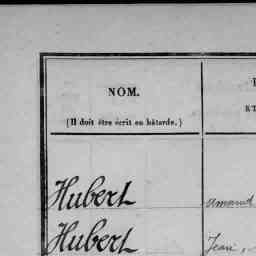 NOM.
(Il doit être écrit en bâtarde.)
Hubert
amand
Hubert
Jean,